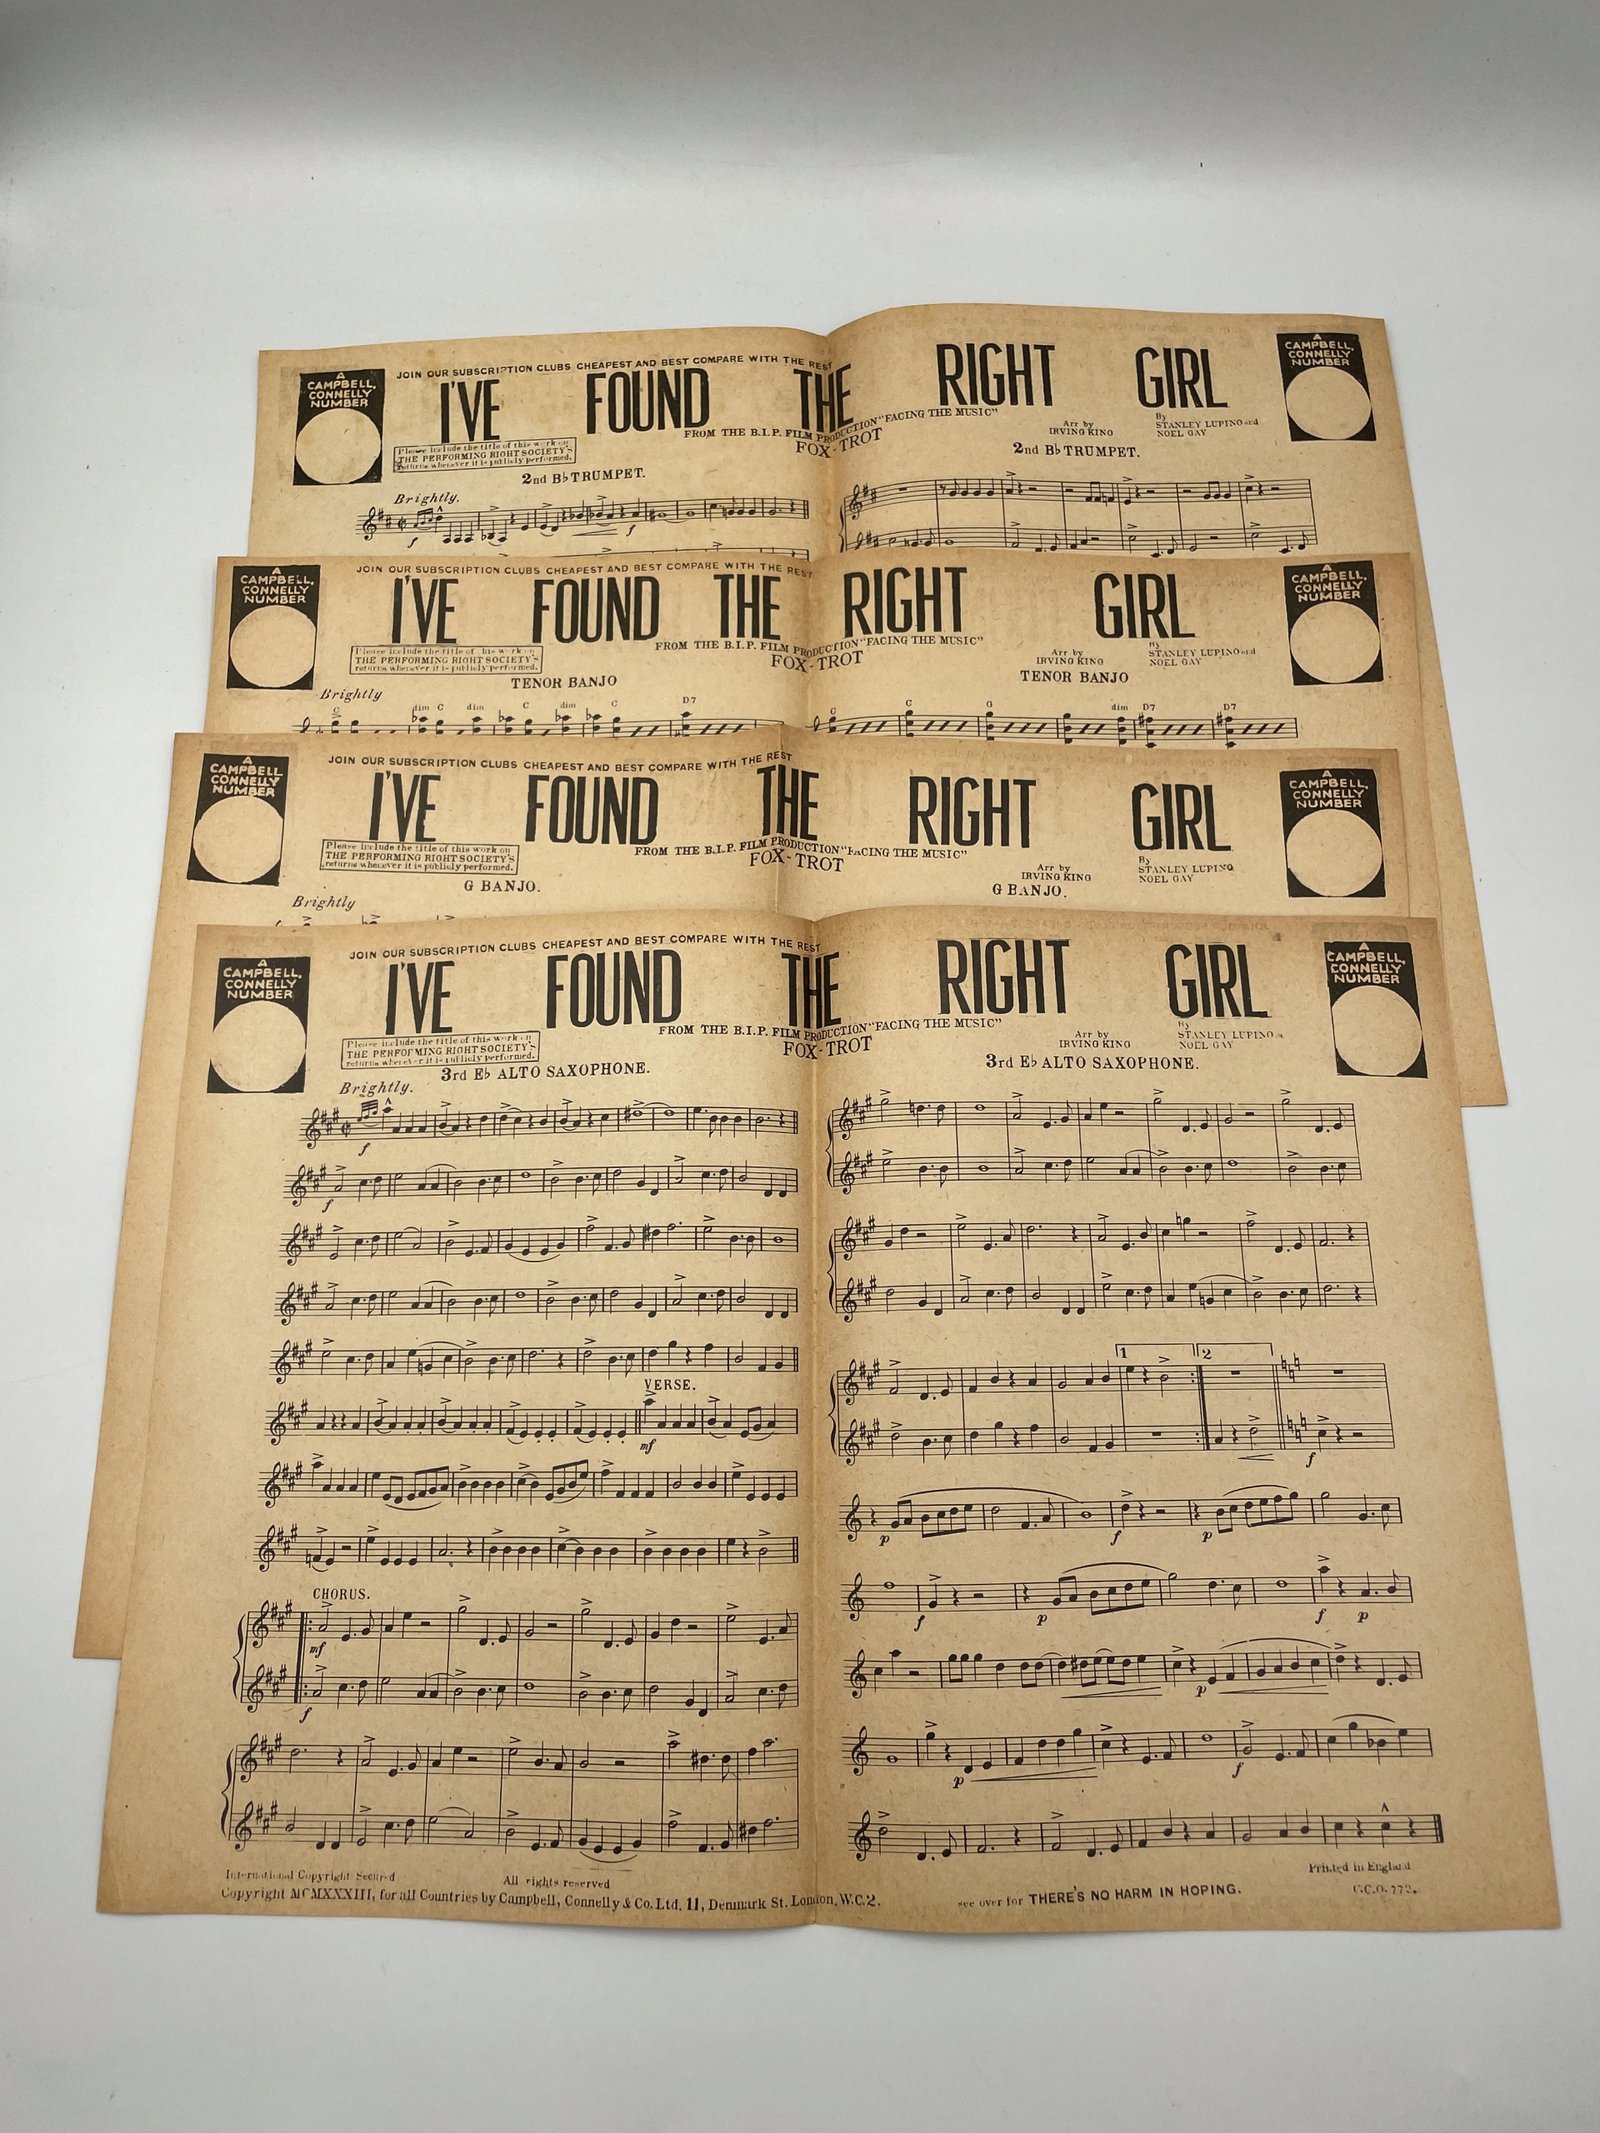 JOIN OUR SUBSCRIPTION CLUBS CHEAPEST AND BEST COMPARE WITH THE REST
A
CAMPBELL,
CONNELLY
NUMBER
I'VE FOUND THE RIGHT GIRL
A
CAMPBELL,
CONNELLY
NUMBER
FROM THE B.I.P. FILM PRODUCTION "FACING THE MUSIC"
FOX-TROT
Please include the title of this work on
THE PERFORMING RIGHT SOCIETY'S
returns whenever it is publicly performed.
Arr by
IRVING KING
By
STANLEY LUPINO and
NOEL GAY
2nd B♭ TRUMPET.
2nd B♭ TRUMPET.
Brightly.
f
f
JOIN OUR SUBSCRIPTION CLUBS CHEAPEST AND BEST COMPARE WITH THE REST
A
CAMPBELL,
CONNELLY
NUMBER
I'VE FOUND THE RIGHT GIRL
A
CAMPBELL,
CONNELLY
NUMBER
FROM THE B.I.P. FILM PRODUCTION "FACING THE MUSIC"
FOX-TROT
Please include the title of this work on
THE PERFORMING RIGHT SOCIETY'S
returns whenever it is publicly performed.
Arr by
IRVING KING
By
STANLEY LUPINO and
NOEL GAY
TENOR BANJO
TENOR BANJO
Brightly
C dim C dim C dim C D7
C C G dim D7 D7
JOIN OUR SUBSCRIPTION CLUBS CHEAPEST AND BEST COMPARE WITH THE REST
A
CAMPBELL
CONNELLY
NUMBER
I'VE FOUND THE RIGHT GIRL
A
CAMPBELL,
CONNELLY
NUMBER
FROM THE B.I.P. FILM PRODUCTION "FACING THE MUSIC"
FOX-TROT
Please include the title of this work on
THE PERFORMING RIGHT SOCIETY'S
returns whenever it is publicly performed.
Arr by
IRVING KING
By
STANLEY LUPINO
NOEL GAY
G BANJO.
G BANJO.
Brightly
JOIN OUR SUBSCRIPTION CLUBS CHEAPEST AND BEST COMPARE WITH THE REST
A
CAMPBELL,
CONNELLY
NUMBER
I'VE FOUND THE RIGHT GIRL
A
CAMPBELL,
CONNELLY
NUMBER
FROM THE B.I.P. FILM PRODUCTION "FACING THE MUSIC"
FOX-TROT
Please include the title of this work on
THE PERFORMING RIGHT SOCIETY'S
returns whenever it is publicly performed.
Arr by
IRVING KING
By
STANLEY LUPINO
NOEL GAY
3rd E♭ ALTO SAXOPHONE.
3rd E♭ ALTO SAXOPHONE.
Brightly.
f
f
VERSE.
mf
CHORUS.
mf
f
1 2
f
p f p
f p f p
p
p f
International Copyright Secured
All rights reserved
Copyright MCMXXXIII, for all Countries by Campbell, Connelly & Co. Ltd. 11, Denmark St. London, W.C.2.
see over for THERE'S NO HARM IN HOPING.
Printed in England